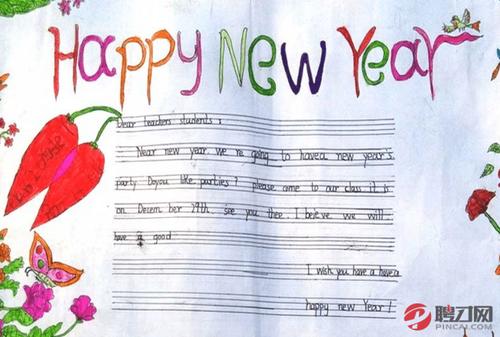 Happy New Year
Dear teachers students:
Near new year we re going to havea new year's
party Doyou like parties? please come to our class it is
on Decem ber 29th. see you thee I believe we will
have a good
I wish you have a havea
happy new Year!
聘刀网
PINCAI.COM